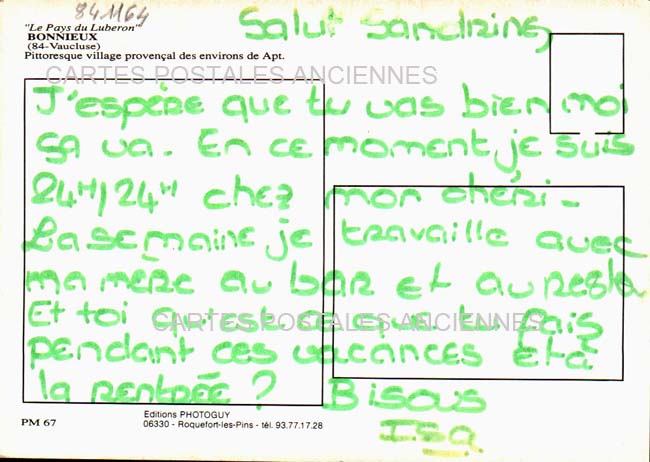 84 1164
"Le Pays du Luberon"
BONNIEUX
(84-Vaucluse)
Pittoresque village provençal des environs de Apt.
Salut Sandrine,
CARTES POSTALES ANCIENNES
J'espére que tu vas bien moi
sa va. En ce moment je suis
24H/24H chez mon chéri-
La semaine je travaille avec
ma mère au bar et au resto
Et toi qu'est ce que tu fais
CARTES POSTALES ANCIENNES
pendant ces vacances et à
la rentrée? Bisous
Isa
PM 67
Editions PHOTOGUY
06330 - Roquefort-les-Pins - tél. 93.77.17.28